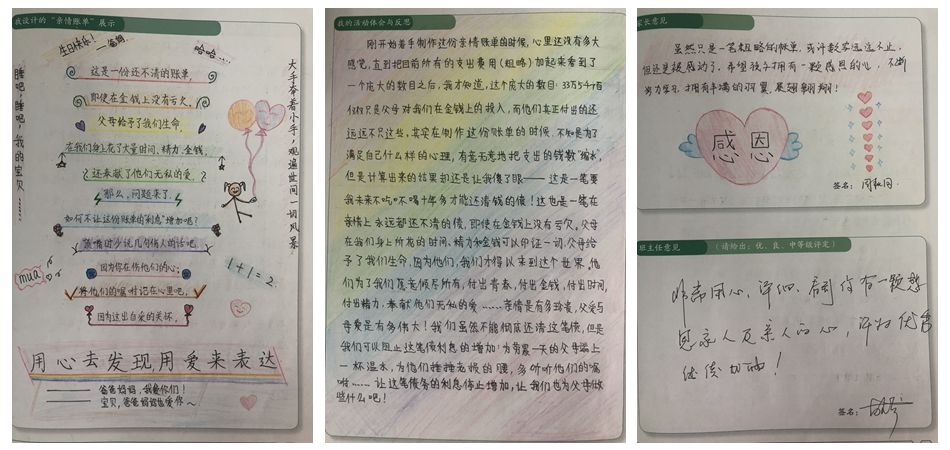 我设计的“亲情账单”展示
生日快乐！
哈哈……
这是一份还不清的账单，
即使在金钱上没有亏欠，
父母给予了我们生命，
在我们身上花了大量时间、精力、金钱，
还奉献了他们无私的爱，
“那么，问题来了，
如何不让这份账单的利息”增加呢？
时少说几句伤人的话吧，
因为你在伤他们的心；
将他们的嘱咐记在心里吧，
因为这出自爱的关怀。
睡吧，睡吧，我的宝贝……
大手牵着小手，观遍世间一切风景
mua
1+1=2
用心去发现用爱来表达
爸爸妈妈，我爱你们！
宝贝，爸爸妈妈也爱你～
我的活动体会与反思
刚开始着手制作这份亲情账单的时候，心里还没有多大
感觉，直到把目前所有的支出费用（粗略）加起来看到了
一个庞大的数目之后，我才知道，这个庞大的数目：33万5千4百
仅仅只是父母对我们在金钱上的投入，而他们真正付出的还
远远不只这些，其实在制作这份账单的时候，不知是为了
满足自己什么样的心理，有意无意地把支出的钱数“缩水”，
但是计算出来的结果却还是让我傻了眼——这是一笔要
我未来不吃不喝十年多才能还清钱的债！这也是一笔在
亲情上永远都还不清的债，即使在金钱上没有亏欠，父母
在我们身上所花的时间、精力和金钱可以印证一切，父母给
予了我们生命，因为他们，我们才得以来到这个世界，他
们为了我们
付出青春，付出金钱，付出时间，
付出精力，奉献他们无私的爱……亲情是有多珍贵，父爱与
母爱是有多伟大！我们虽然不能彻底还清这笔债，但是
我们可以阻止这笔债利息的增加！为劳累一天的父母端上
一杯温水，为他们捶捶老极的腿，多听听他们的嘱
咐……让这笔债务的利息停止增加，让我们也为父母做
些什么吧！
家长意见
虽然只是一笔粗略的账单，或许数字远远不止，
但还是被感动了，希望孩子拥有一颗感恩的心，不断
努力学习，拥有丰满的羽翼，展翅翱翔！
感恩
签名：
班主任意见（请给出：优、良、中等级评定）
非常用心、详细、看得出有一颗感
恩家人及亲人的心，评为优秀
继续加油！
签名：